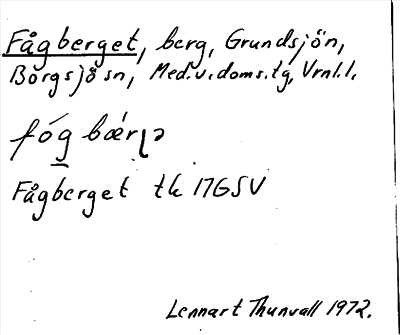 Fågberget, berg, Grundsjön,
Borgsjö sn, Med.v.doms.tg, Vrnl.l.
fóg bǽrɩə
Fågberget tk 17GSV
Lennart Thunvall 1972.